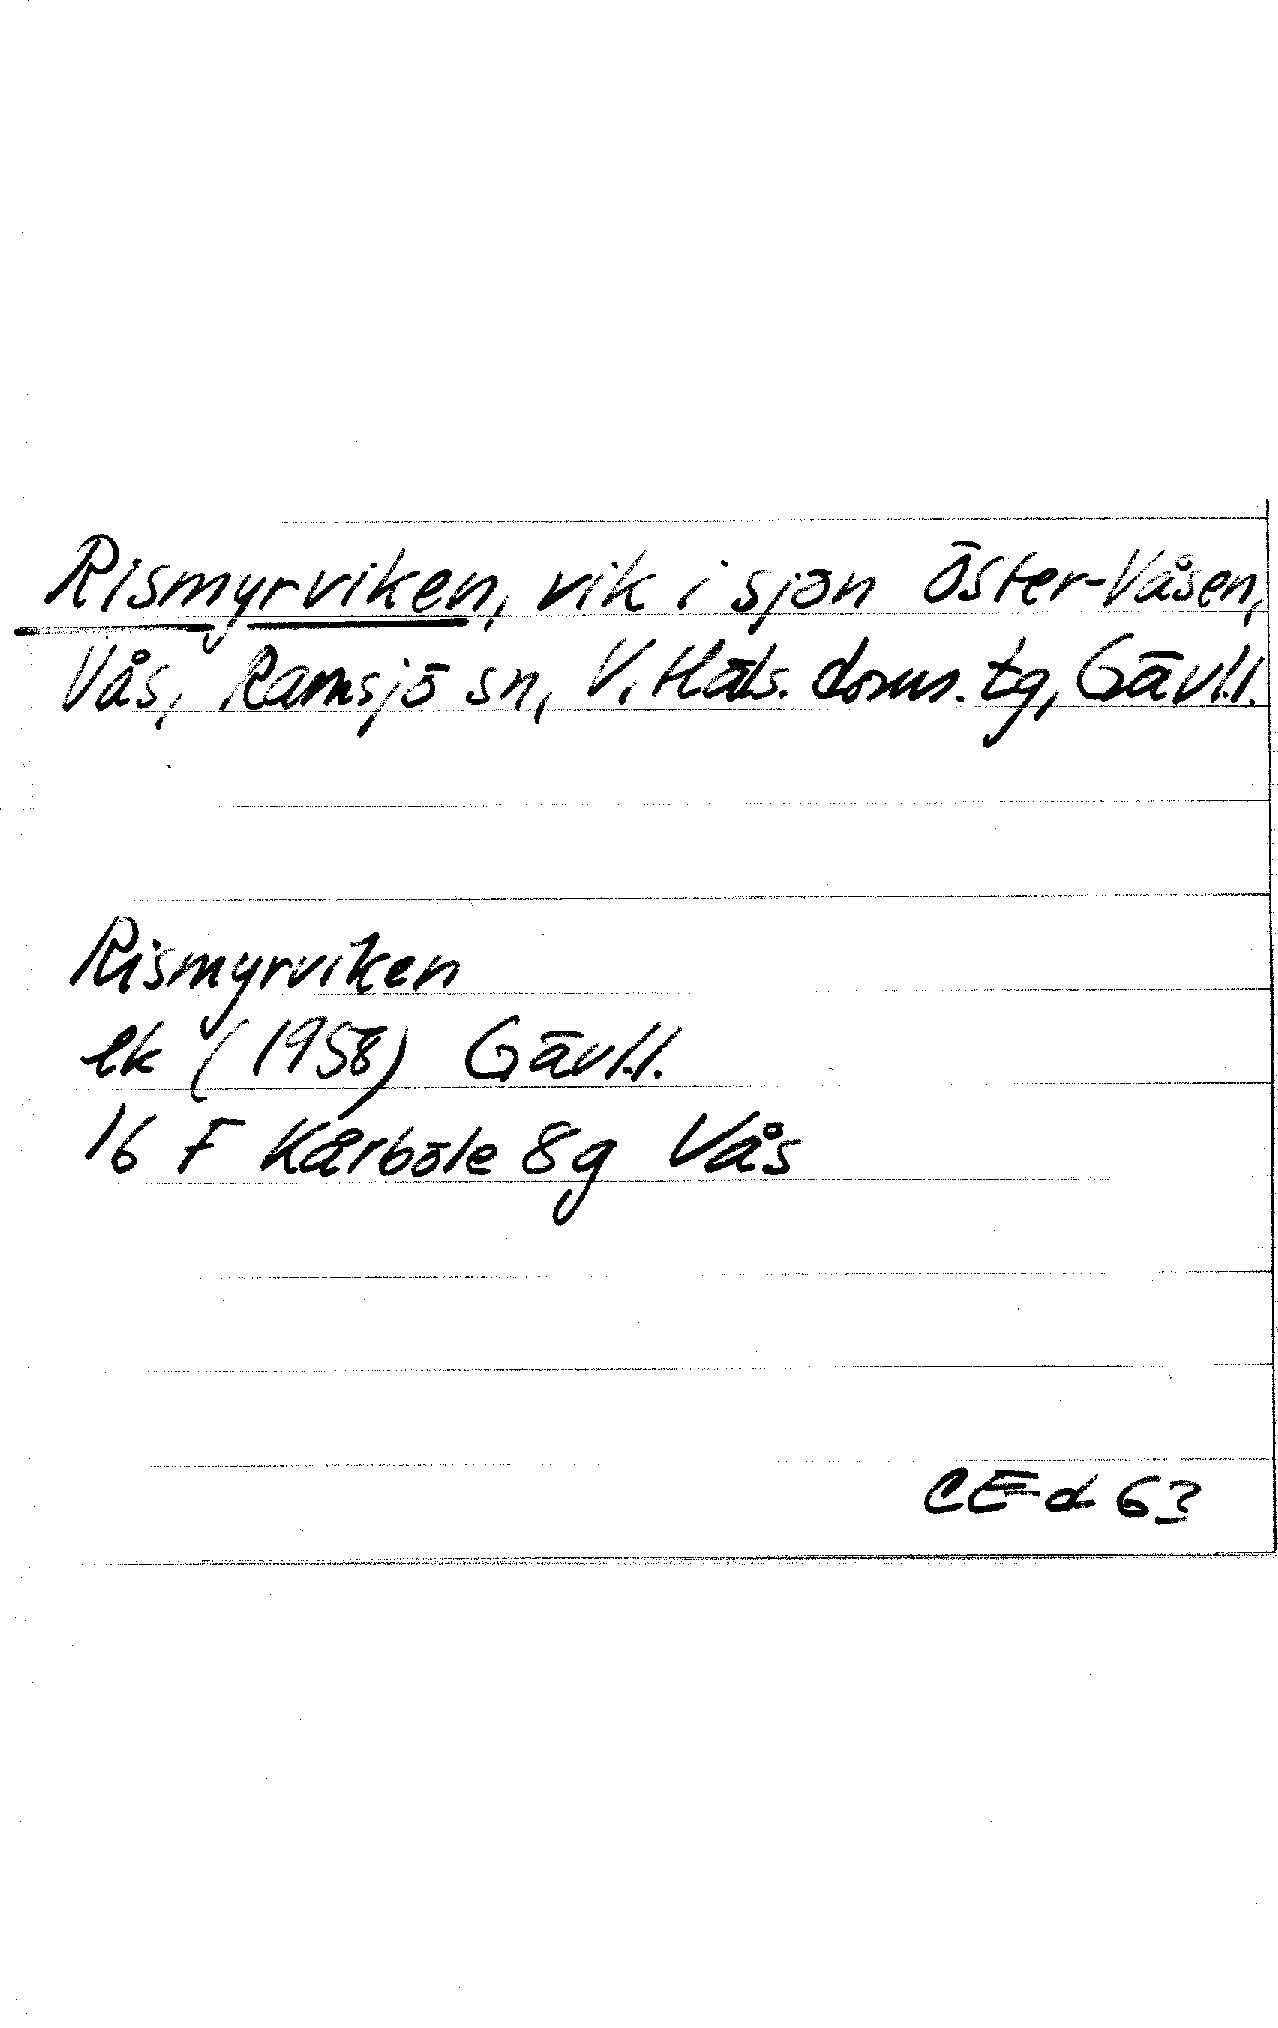 Rismyrviken, vik i sjön Öster-Våsen,
Vås, Ramsjö sn, V. Häls. doms. tg, Gävl.l.
Rismyrviken
ek (1958) Gävl.l.
16 F Kårböle 8g Vås
CEd 63